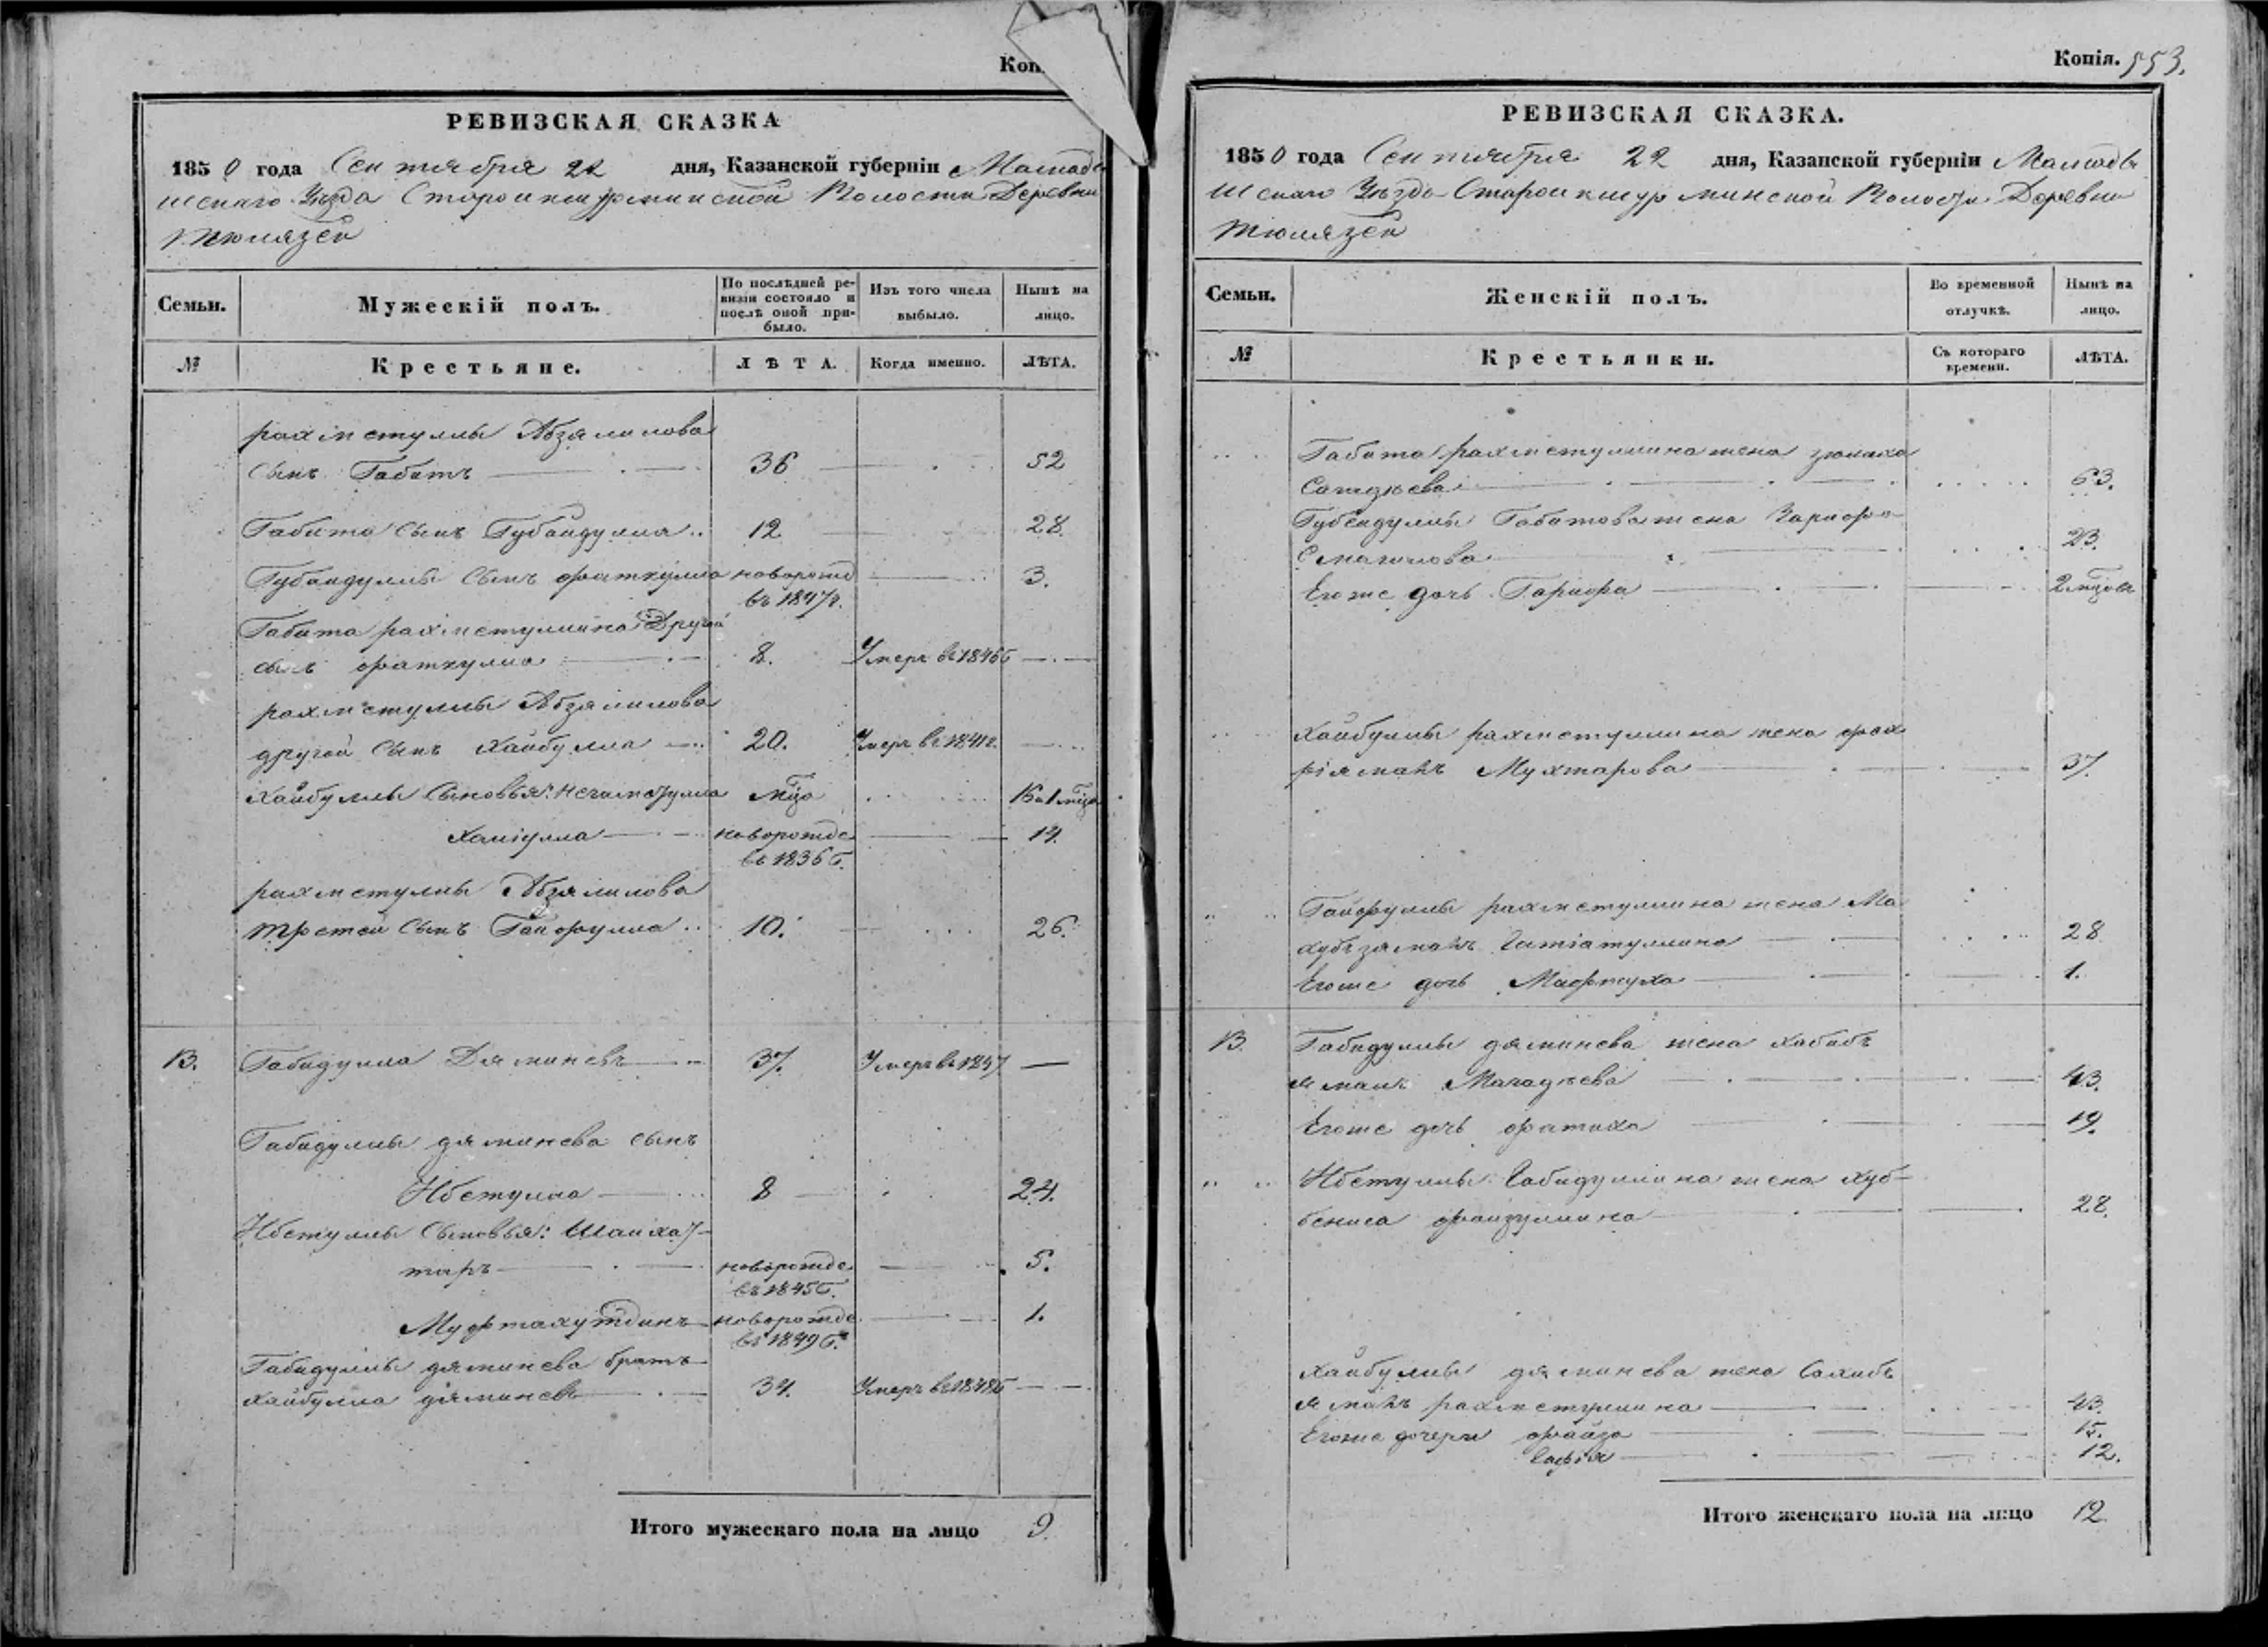 Коп
РЕВИЗСКАЯ СКАЗКА
1850 года Сентября 22 дня, Казанской губерніи Мамады
шскаго Уѣзда Староикшурминской Волости Деревни
Тюлязей
Семьи. Мужескій полъ. По послѣдней ре-визіи состояло и послѣ оной при-было. Изъ того числа выбыло. Нынѣ на лицо.
№ Крестьяне. ЛѢТА. Когда именно. ЛѢТА.
рахметуллы Абзялилова
сынъ Габитъ 36 52
Габита сынъ Губайдулла 12 28
Губайдуллы сынъ фаткулла новорожд 3.
въ 1847г.
Габита рахметуллина Другой
сынъ фаткулла 8. Умеръ въ 1846
рахметуллы Абзялилова
другой сынъ Хайбулла 20. Умеръ въ 1841г.
Хайбуллы сыновья: Негаметулла мца 16 1 мца
Хамидулла новорожде 14
въ 1836
рахметуллы Абзялилова
третей сынъ Гайфулла 10. 26.
13. Габидулла Дяминевъ 37. Умеръ въ 1847
Габидуллы дяминева сынъ
Ибетулла 8 24.
Ибетуллы сыновья: Шайхат-
таръ новорожде 5.
въ 1845
Муфтахутдинъ новорожде 1.
въ 1849
Габидуллы дяминева братъ
Хайбулла дяминевъ 34. Умеръ въ 1848
Итого мужескаго пола на лицо 9.
Копія. 553.
РЕВИЗСКАЯ СКАЗКА.
1850 года Сентября 22 дня, Казанской губерніи Мамады
шскаго Уѣзда Староикшурминской Волости Деревни
Тюлязей
Семьи. Женскій полъ. Во временной отлучкѣ. Нынѣ на лицо.
№ Крестьянки. Съ котораго времени. ЛѢТА.
Габита рахметуллина жена зюлиха
Сагидѣева 63.
Губайдуллы Габитова жена Зарифа
Смагилова 23.
Его же дочь Гарифа 2 мцовъ
Хайбуллы рахметуллина жена фах
ріямалъ Мухтарова 37.
Гайфуллы рахметуллина жена Ма
хубзямалъ Гатіатуллина 28
Его же дочь Мифтуха 1.
13. Габидуллы дяминева жена хабибъ
ямалъ Магадѣева 43.
Его же дочь фатиха 19.
Ибетуллы Габидуллина жена Хуб-
бениса файзуллина 28.
Хайбуллы дяминева жена Сахибъ
ямалъ рахметуллина 43.
Его же дочери файза 15.
Сафія 12.
Итого женскаго пола на лицо 12